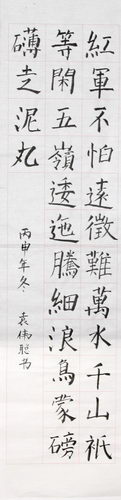 紅軍不怕遠徵難萬水千山祇
等閑五嶺逶迤騰細浪鳥蒙磅
礴走泥丸
丙申年冬
袁偉聰书